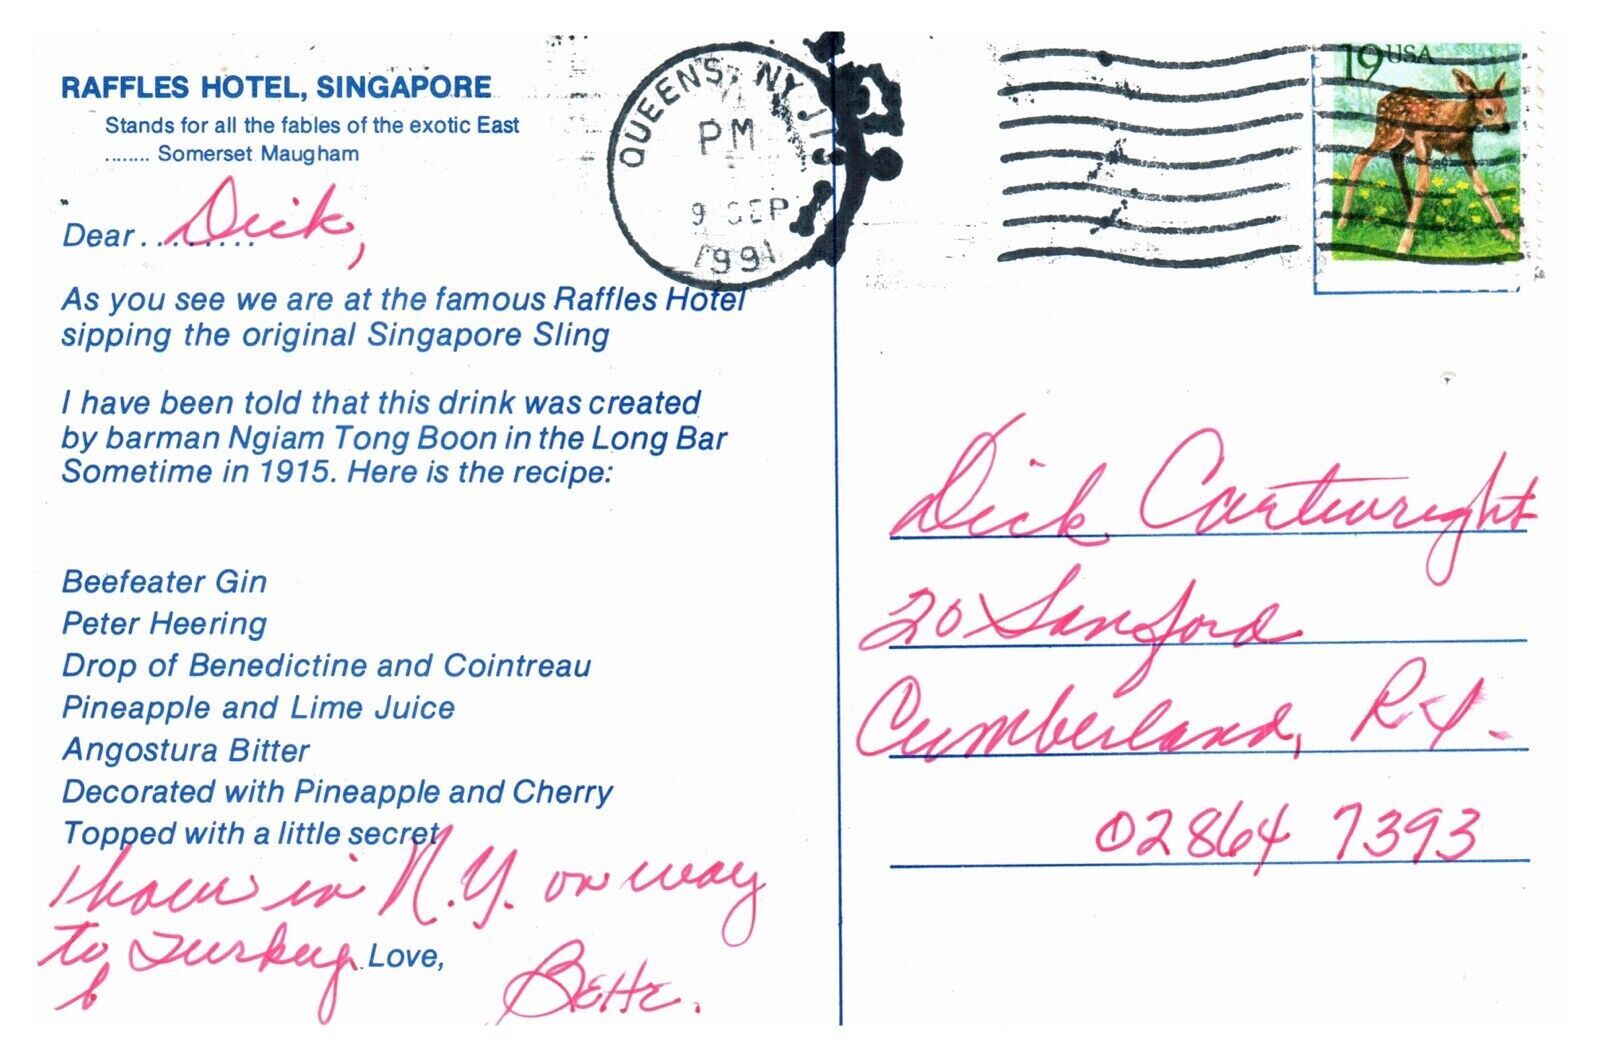 RAFFLES HOTEL, SINGAPORE
Stands for all the fables of the exotic East
........ Somerset Maugham
Dear......... Dick,
As you see we are at the famous Raffles Hotel
sipping the original Singapore Sling
I have been told that this drink was created
by barman Ngiam Tong Boon in the Long Bar
Sometime in 1915. Here is the recipe:
Beefeater Gin
Peter Heering
Drop of Benedictine and Cointreau
Pineapple and Lime Juice
Angostura Bitter
Decorated with Pineapple and Cherry
Topped with a little secret
1 hour in N.Y. on way
to Turkey. Love,
Bette.
QUEENS, NY 11
PM
9 SEP
1991
19 USA
Dick Cartwright
20 Sanford
Cumberland, R.I.
02864 7393